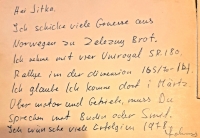 Hai Jitka.
Ich schicke viele Groesse aus
Norwegen zu Zelezny Brot.
Ich nehme mit vier Uniroyal SR.180.
Rallye in der dimension 165/
Ich glaube ich komme dort i März.
Über motor und Getrieb, muss Du
sprechen mit Buden oder Simek.
Ich wünsche viele Erfolgien 1978.